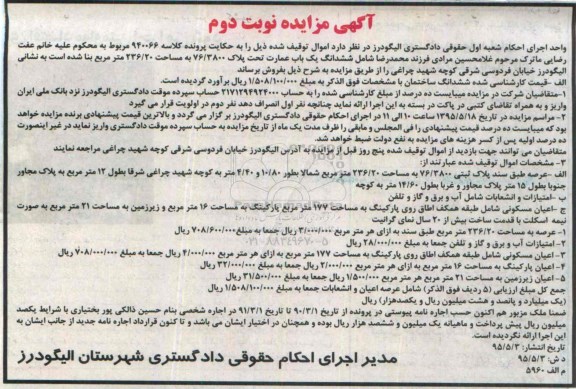 آگهی مزایده نوبت دوم
واحد اجرای احکام شعبه اول حقوقی دادگستری الیگودرز در نظر دارد اموال توقیف شده ذیل را به حکایت پرونده کلاسه ۹۴۰۰۶۶ مربوط به محکوم علیه خانم عفت
رضایی ماترک مرحوم غلامحسین مرادی فرزند محمدرضا شامل ششدانگ یک باب عمارت تحت پلاک ۷۶/۳۸۰۰ به مساحت ۲۳۶/۲۰ متر مربع بنا شده است به نشانی
الیگودرز خیابان فردوسی شرقی کوچه شهید چراغی را از طریق مزایده به شرح ذیل بفروش برساند
۱-قیمت کارشناسی شده ششدانگ ساختمان با مشخصات فوق الذکر به مبلغ ۱/۵۰۸/۱۰۰/۰۰۰ ریال برآورد گردیده است.
۱-متقاضیان شرکت در مزایده میبایست ده درصد از مبلغ کارشناسی شده را به حساب ۲۱۷۱۲۹۴۹۲۴۰۰۰ حساب سپرده موقت دادگستری الیگودرز نزد بانک ملی ایران
واریز و به همراه تقاضای کتبی در پاکت در بسته به این اجرا ارائه نماید چنانچه نفر اول انصراف دهد نفر دوم در اولویت می گیرد
۲-مراسم مزایده در تاریخ ۱۳۹۵/۵/۱۸ ساعت ۱۰ الی ۱۱ در اجرای احکام حقوقی دادگستری الیگودرز بر گزار می گردد و بالاترین قیمت پیشنهادی برنده مزایده خواهد
بود که میبایست ده درصد قیمت پیشنهادی را فی المجلس و مابقی را ظرف مدت یک ماه از تاریخ مزایده به حساب سپرده موقت دادگستری واریز نماید در غیر اینصورت
ده درصد اولیه پس از کسر هزینه های مزایده به نفع دولت ضبط خواهد شد.
متقاضیان می توانند جهت بازدید از اموال توقیف شده پنج روز قبل از مزایده به آدرس الیگودرز خیابان فردوسی شرقی کوچه شهید چراغی مراجعه نمایند
۳- مشخصات اموال توقیف شده عبارتند از:
الف-عرصه طبق سند پلاک ثبتی ۷۶/۳۸۰۰ به مساحت ۲۳۶/۲۰ متر مربع شمالا بطور ۱۰/۸۰ و ۴/۴۰ متر به کوچه شهید چراغی شرقا بطول ۱۲ متر به پلاک مجاور
جنوبا بطول ۱۵ متر پلاک مجاور و غربا بطول ۱۴/۶۰ متر به کوچه
ب -امتیازات و انشعابات شامل آب و برق و گاز و تلفن
ج -اعیان مسکونی شامل طبقه همکف اطاق روی پارکینگ به مساحت ۱۷۷ متر مربع پارکینگ به مساحت ۱۶ متر مربع و زیرزمین به مساحت ۲۱ متر مربع به صورت
نیمه اسکلت با قدمت ساخت بیش از ۲۰ سال نمای گرانیت
۱-عرصه به مساحت ۲۳۶/۲۰ متر مربع طبق سند به ازای هر متر مربع ۳/۰۰۰/۰۰۰ ریال جمعا به مبلغ ۷۰۸/۶۰۰/۰۰۰ ریال
۲-امتیازات آب و برق و گاز و تلفن جمعا به مبلغ ۲۸/۰۰۰/۰۰۰ ریال
۳-اعیان مسکونی شامل طبقه همکف اطاق روی پارکینگ به مساحت ۱۷۷ متر مربع به ازای هر متر مربع ۴/۰۰۰/۰۰۰ ریال جمعا به مبلغ ۷۰۸/۰۰۰/۰۰۰ ریال
۴-اعیان پارکینگ به مساحت ۱۶ متر مربع به ازای هر متر مربع ۲/۰۰۰/۰۰۰ ریال جمعا به مبلغ ۳۲/۰۰۰/۰۰۰ ریال
۵-اعیان زیرزمین به مساحت ۲۱ متر مربع هر متر مربع ۱/۵۰۰/۰۰۰ ریال جمعا به مبلغ ۳۱/۵۰۰/۰۰۰ ریال
جمع کل مبلغ ارزیابی (۵ ردیف فوق الذکر) شامل عرصه اعیان و انشعابات جمعا به مبلغ ۱/۵۰۸/۱۰۰/۰۰۰ ریال
(یک میلیارد و پانصد و هشت میلیون ریال و یکصدهزار) ریال
ضمنا ملک مزبور هم اکنون حسب اجاره نامه پیوستی در پرونده از تاریخ ۹۰/۳/۱ تا تاریخ ۹۱/۳/۱ در اجاره شخصی بنام حسین ذالکی پور بختیاری با شرایط یکصد
میلیون ریال پیش پرداخت و ماهیانه یک میلیون و ششصد هزار ریال بوده و همچنان در اختیار ایشان می باشد و تا کنون قرارداد اجاره نامه جدید از جانب ایشان به
این اجرا ارائه نگردیده است.
تاریخ انتشار: ۹۵/۵/۳
د ش: ۹۵/۵/۳
م الف ۵۹۶۰
مدیر اجرای احکام حقوقی دادگستری شهرستان الیگودرز